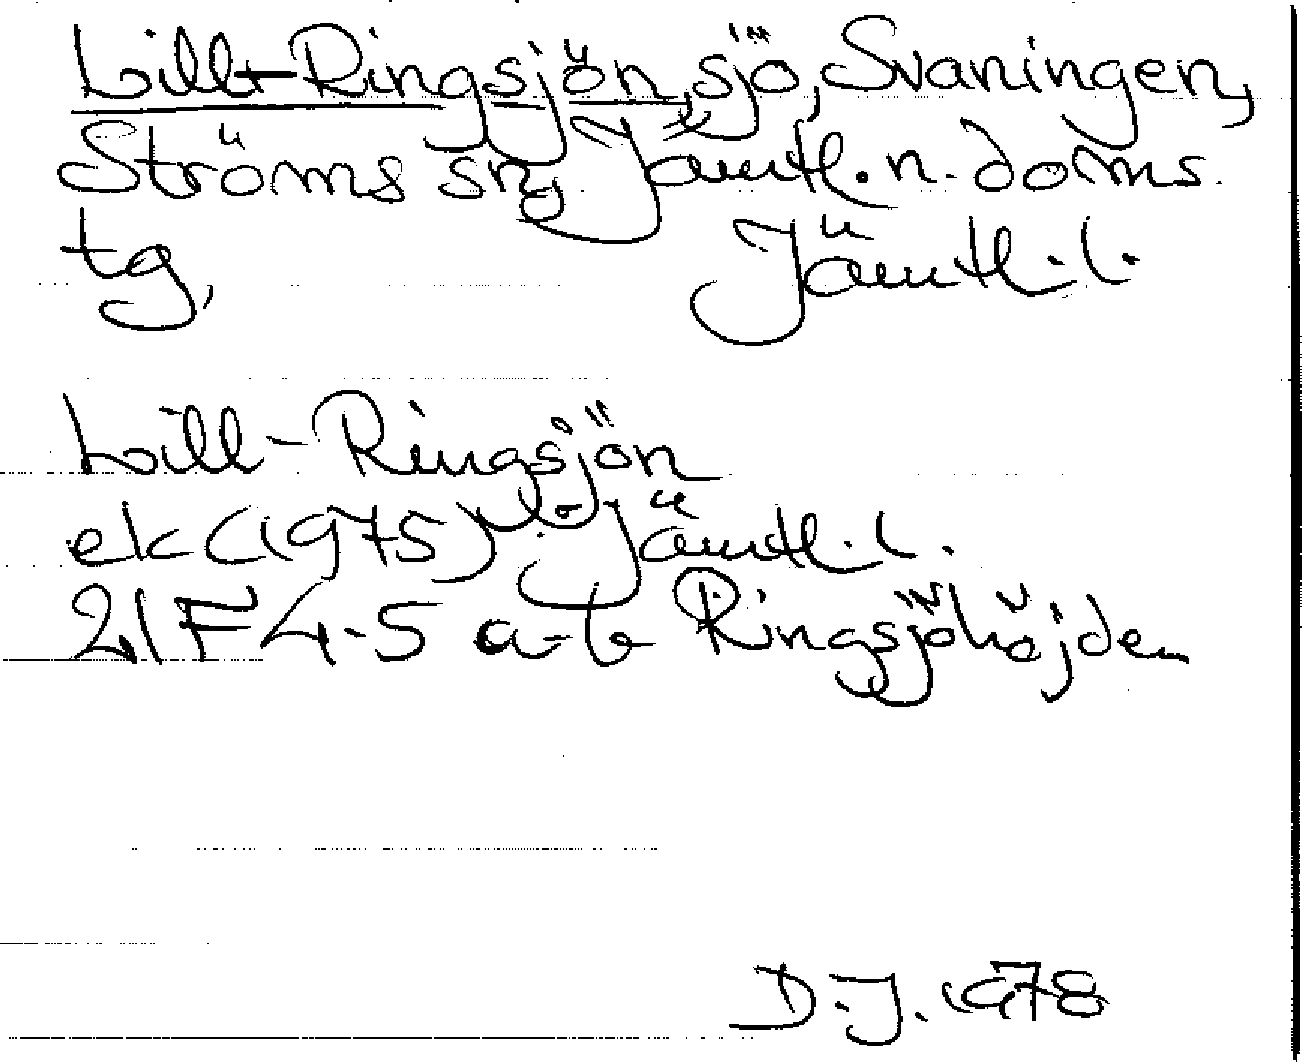 Lill-Ringsjön, sjö, Svaningen,
Ströms sn, Jämtl. n. doms.
tg, Jämtl. l.
Lill-Ringsjön
ek (1975) : Jämtl. l.
21F 4-5 a-b Ringsjöhöjden
D.J. 1978